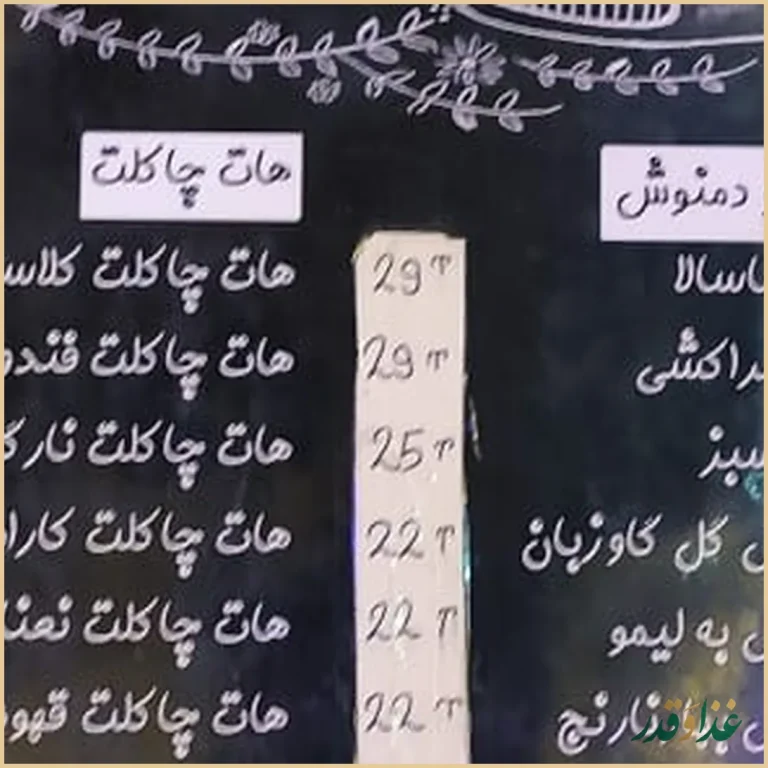 دمنوش
سالا
راکشی
سبز
گل گاوزبان
به لیمو
نارنج
29 T
29 T
25 T
22 T
22 T
22 T
هات چاکلت
هات چاکلت کلاس
هات چاکلت فندو
هات چاکلت نارگ
هات چاکلت کارا
هات چاکلت نعنا
هات چاکلت قهو
غذا و قدر